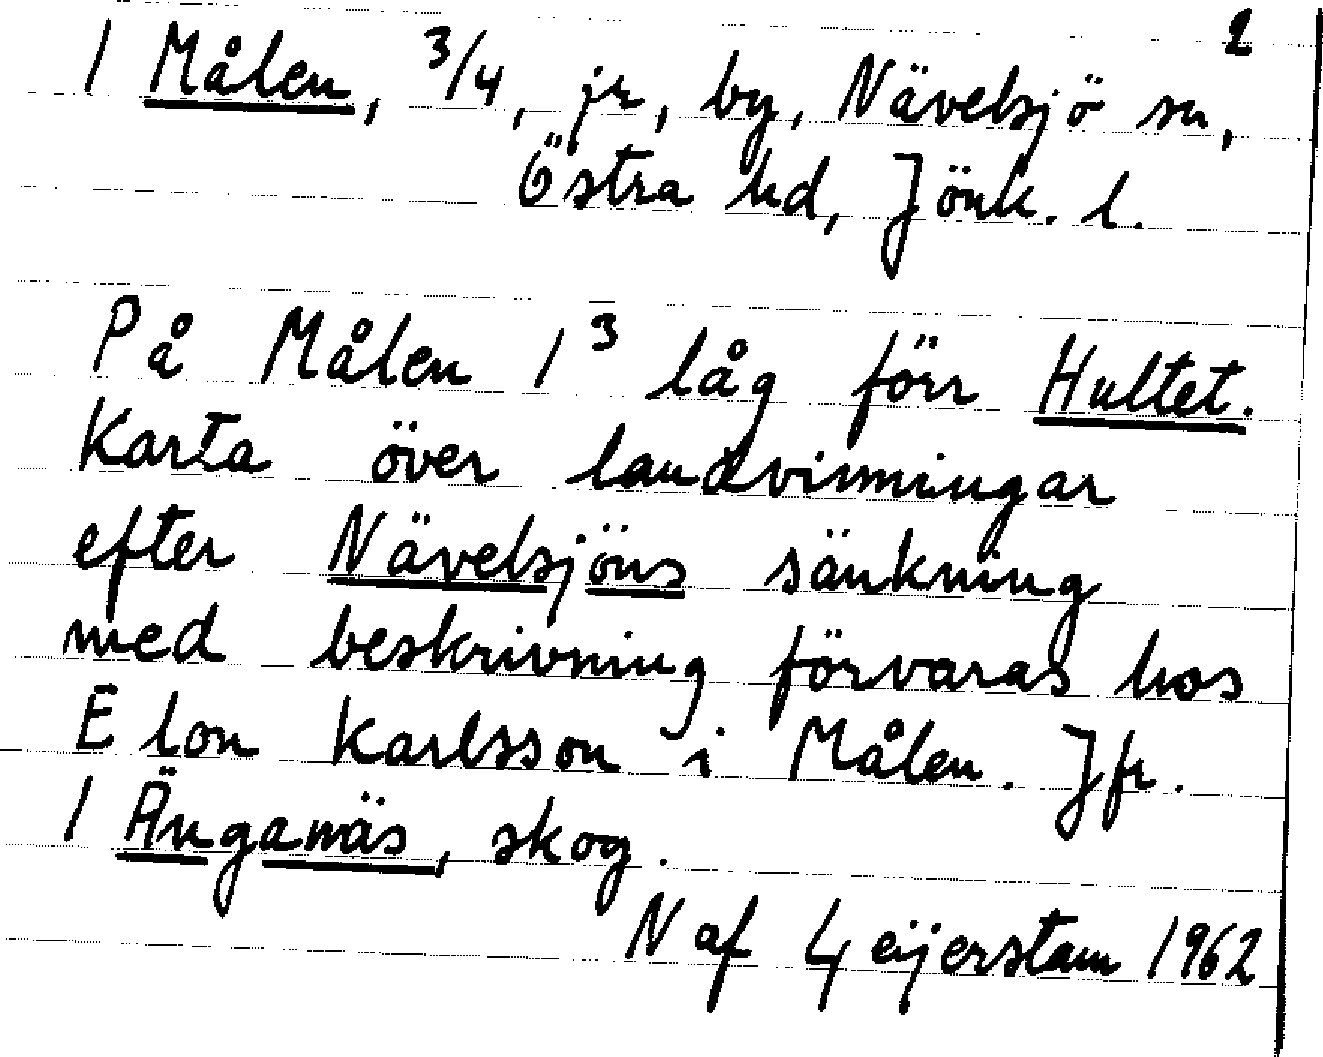 2
1 Målen, 3/4, jr, by, Nävelsjö sn,
Östra hd, Jönk. l.
På Målen 1³ låg förr Hultet.
Karta över landvinningar
efter Nävelsjöns sänkning
med beskrivning förvaras hos
Elon Karlsson i Målen. Jfr.
1 Änganäs, skog.
N af Geijerstam 1962